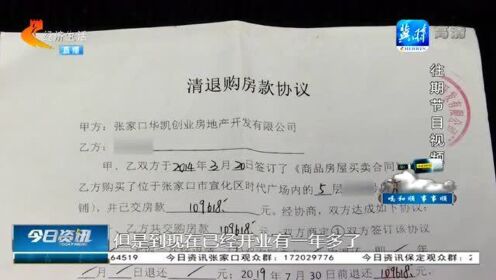 经济生活
直播
冀林
CHERRIES
高清
往期节目视频
清退购房款协议
甲方：张家口华凯创业房地产开发有限公司
乙方：
甲、乙双方于2014年3月20日签订了《商品房屋买卖合同
乙方购买了位于张家口市宣化区时代广场内的5层
铺），并已交房款109618元。经协商，双方达成如下协议：
乙方共交购房款109618元，
签订该协议
喝和顺 事事顺
但是到现在已经开业有一年多了
今日资讯
月 日退还 元，2019年7月30日前退还109618元
64519
今日资讯张家口观众群：172029776
今日资讯保定观众群：2